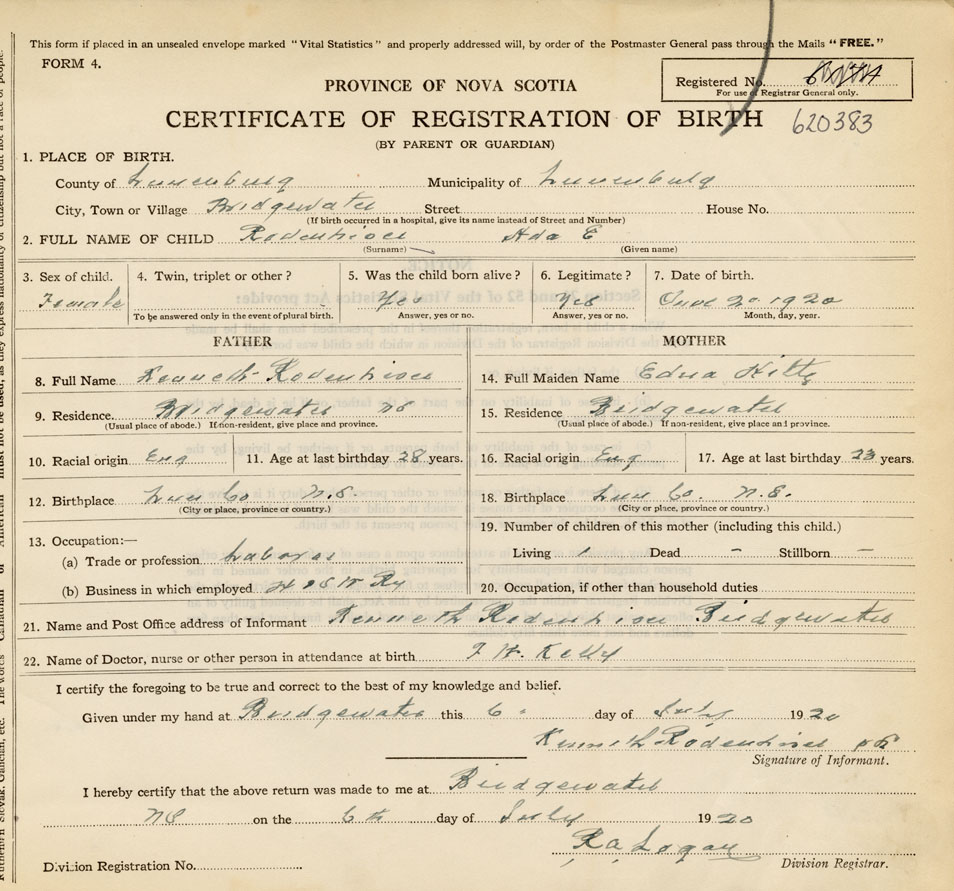 This form if placed in an unsealed envelope marked "Vital Statistics" and properly addressed will, by order of the Postmaster General pass through the Mails "FREE."
FORM 4.
PROVINCE OF NOVA SCOTIA
Registered No.
For use of Registrar General only.
CERTIFICATE OF REGISTRATION OF BIRTH 620383
(BY PARENT OR GUARDIAN)
1. PLACE OF BIRTH.
County of Lunenburg Municipality of Lunenburg
City, Town or Village Bridgewater Street House No.
(If birth occurred in a hospital, give its name instead of Street and Number)
2. FULL NAME OF CHILD Rodenhiser Ada E
(Surname) (Given name)
3. Sex of child. 4. Twin, triplet or other? 5. Was the child born alive? 6. Legitimate? 7. Date of birth.
Female Yes Yes June 20 1920
To be answered only in the event of plural birth. Answer, yes or no. Answer, yes or no. Month, day, year.
FATHER MOTHER
8. Full Name Kenneth Rodenhiser 14. Full Maiden Name Edna
9. Residence. Bridgewater NS 15. Residence Bridgewater
(Usual place of abode.) If non-resident, give place and province. (Usual place of abode.) If non-resident, give place and province.
10. Racial origin Eng 11. Age at last birthday 28 years. 16. Racial origin Eng 17. Age at last birthday 23 years.
12. Birthplace Lun Co N.S. 18. Birthplace Lun Co. N.S.
(City or place, province or country.) (City or place, province or country.)
13. Occupation:— 19. Number of children of this mother (including this child.)
(a) Trade or profession Laborer Living 1 Dead - Stillborn -
(b) Business in which employed H & S W Ry 20. Occupation, if other than household duties
21. Name and Post Office address of Informant Kenneth Rodenhiser Bridgewater
22. Name of Doctor, nurse or other person in attendance at birth Kelly
I certify the foregoing to be true and correct to the best of my knowledge and belief.
Given under my hand at Bridgewater this 6 day of July 1920
Kenneth Rodenhiser
Signature of Informant.
I hereby certify that the above return was made to me at Bridgewater
NS on the 6th day of July 1920
R a Logan
Division Registration No. Division Registrar.